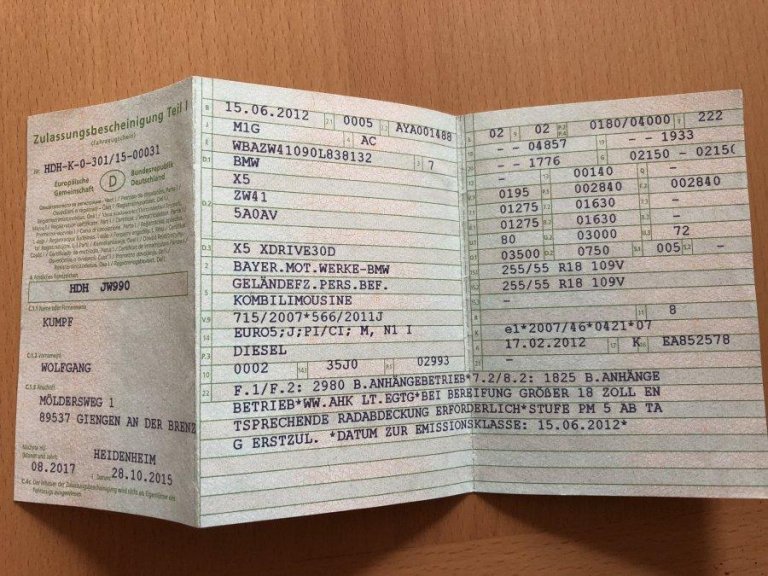 Zulassungsbescheinigung Teil I
(Fahrzeugschein)
Nr. HDH-K-0-301/15-00031
Europäische Gemeinschaft D Bundesrepublik Deutschland
HDH JW990
C.1.1
KUMPF
C.1.2
WOLFGANG
C.1.3 Anschrift
MÖLDERSWEG 1
89537 GIENGEN AN DER BRENZ
Nächste HU
HEIDENHEIM
08.2017
28.10.2015
C.4c. Der Inhaber der Zulassungsbescheinigung wird nicht als Eigentümer des Fahrzeugs ausgewiesen.
B 15.06.2012 2.1 0005 2.2 AYA001488
J M1G 4 AC
E WBAZW41090L838132 3 7
D.1 BMW
X5
D.2 ZW41
5A0AV
D.3 X5 XDRIVE30D
2 BAYER.MOT.WERKE-BMW
5 GELÄNDEFZ.PERS.BEF.
KOMBILIMOUSINE
V.9 715/2007*566/2011J
14 EURO5;J;PI/CI; M, N1 I
P.3 DIESEL
10 0002 14.1 35J0 P.1 02993
22 F.1/F.2: 2980 B.ANHÄNGEBETRIEB*7.2/8.2: 1825 B.ANHÄNGE
BETRIEB*WW.AHK LT.EGTG*BEI BEREIFUNG GRÖßER 18 ZOLL EN
TSPRECHENDE RADABDECKUNG ERFORDERLICH*STUFE PM 5 AB TA
G ERSTZUL. *DATUM ZUR EMISSIONSKLASSE: 15.06.2012*
02 9 02 P.2 P.4 0180/04000 T 222
- - 04857 - - 1933
- - 1776 02150 - 0215
- 00140 -
0195 002840 002840
01275 01630 -
01275 01630 -
80 03000 72
03500 0750 005 -
255/55 R18 109V
255/55 R18 109V
-
- 8
K e1*2007/46*0421*07
6 17.02.2012 17 K EA852578
-